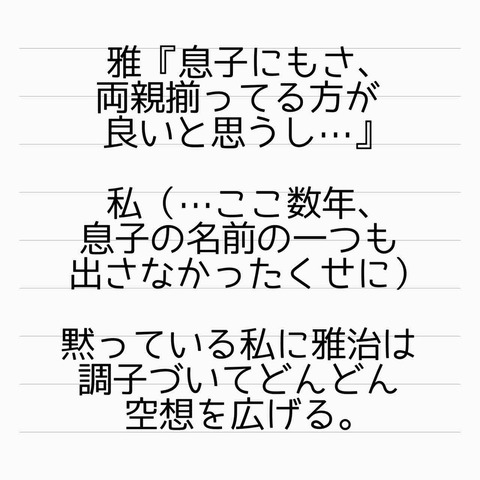 雅『息子にもさ、
両親揃ってる方が
良いと思うし…』
私（…ここ数年、
息子の名前の一つも
出さなかったくせに）
黙っている私に雅治は
調子づいてどんどん
空想を広げる。